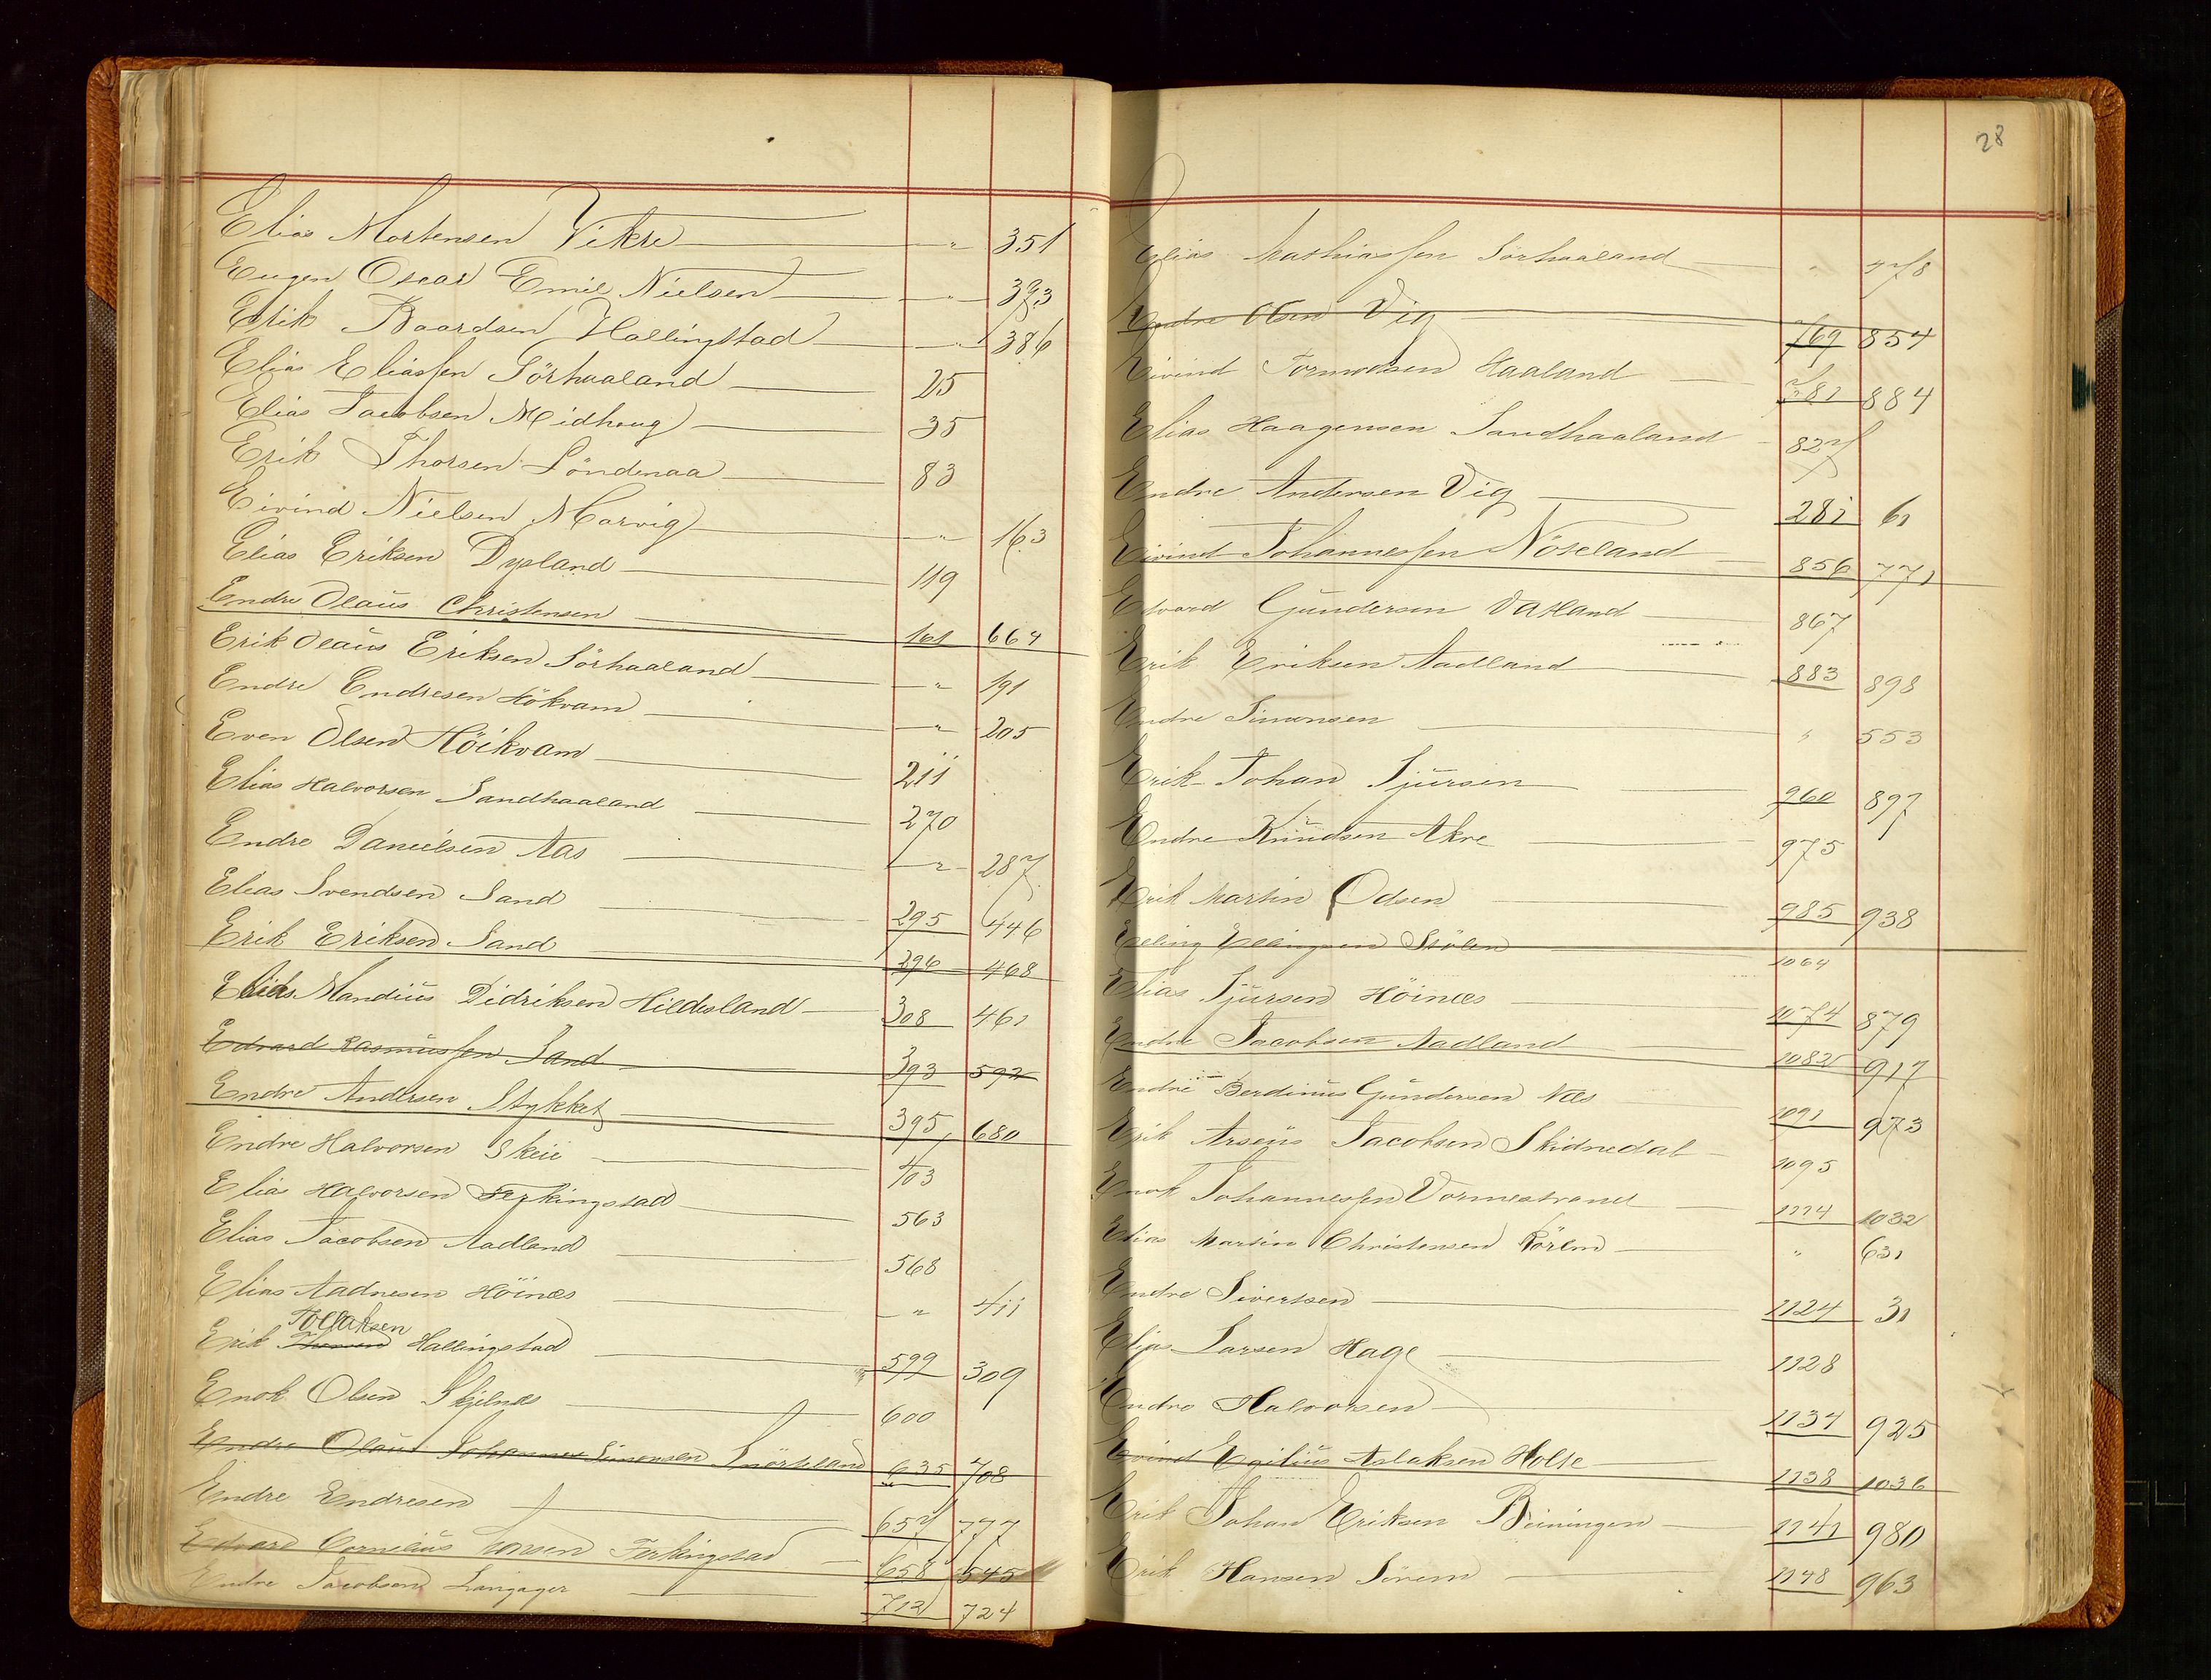 Elias Mortensen Vikre " 351
Eugen Oscar Emil Nielsen " 393
Erik Baardsen Hallingstad " 386
Elias Eliassen Sörhaaland 25
Elias Jacobsen Midhaug 35
Erik Thorsen Löndenaa 83
Eivind Nielsen Marvig " 163
Elias Eriksen Dysland 119
Endre Olaus Christensen 161 664
Erik Olaus Eriksen Sörhaaland " 191
Endre Endresen Hökvam " 205
Even Olsen Höikvam 211
Elias Halvorsen Sandhaaland 270
Endre Danielsen Aas " 287
Elias Svendsen Sand 295 446
Erik Eriksen Sand 296 468
Elias Mandius Didriksen Hildesland 308 461
Edvard Rasmussen Sand 393 592
Endre Andersen Stykket 395 680
Endre Halvorsen Skeie 403
Elias Halvorsen Ferkingstad 563
Elias Jacobsen Aadland 568
Elias Aadnesen Höines " 411
Tollaksen
Erik Hallingstad 599 309
Enok Olsen Skjelnes 600
Endre Olaus Johannes Simonsen Snörteland 635 708
Endre Endresen 657 777
Edvard Cornelius Hansen Ferkingstad 658 545
Endre Jacobsen Langager 712 724
28
Elias Mathiassen Sörhaaland " 478
Endre Olsen Vig 769 854
Eivind Tormodsen Haaland 781 884
Elias Haagensen Sandhaaland 827
Endre Andersen Vig 281 61
Eivind Johannessen Nöseland 856 771
Edvard Gundersen Vatland 867
Erik Eriksen Aadland 883 898
Endre Simonsen " 553
Erik Johan Sjursen 960 897
Endre Knudsen Akre 975
Erik Martin Odsen 985 938
Elling Ellingsen Stölen 1064
Elias Sjursen Höines 1074 879
Endre Jacobsen Aadland 1082 917
Endre Berdinus Gundersen Næs 1091 973
Erik Arseus Jacobsen Skidnedal 1095
Enok Johannessen Vormestrand 1114 1032
Elias Martin Christensen " 631
Endre Sivertsen 1124 31
Elias Larsen Hage 1128
Endre Halvorsen 1134 925
Eivind Egilius Aslaksen Holte 1138 1036
Erik Johan Eriksen Beiningen 1141 980
Erik Hansen Sörem 1148 963